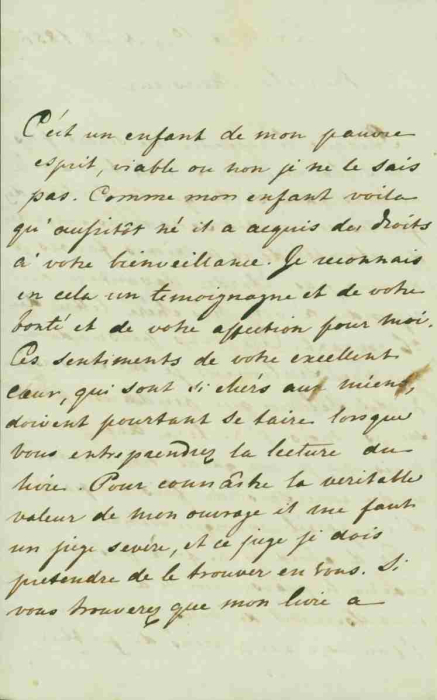 C'est un enfant de mon pauvre
esprit, viable ou non je ne le sais
pas. Comme mon enfant voila
qu'aussitôt né il a acquis des droits
à votre bienveillance. Je reconnais
en cela un temoignagne et de votre
bonté et de votre affection pour moi.
Ces sentiments de votre excellent
cœur, qui sont si chérs aux miens,
doivent pourtant se taire lorsque
vous entreprendrez la lecture du
livre. Pour connaître la veritable
valeur de mon ouvrage il me faut
un juge sevère, et ce juge je dois
pretendre de le trouver en vous. Si
vous trouverez que mon livre a